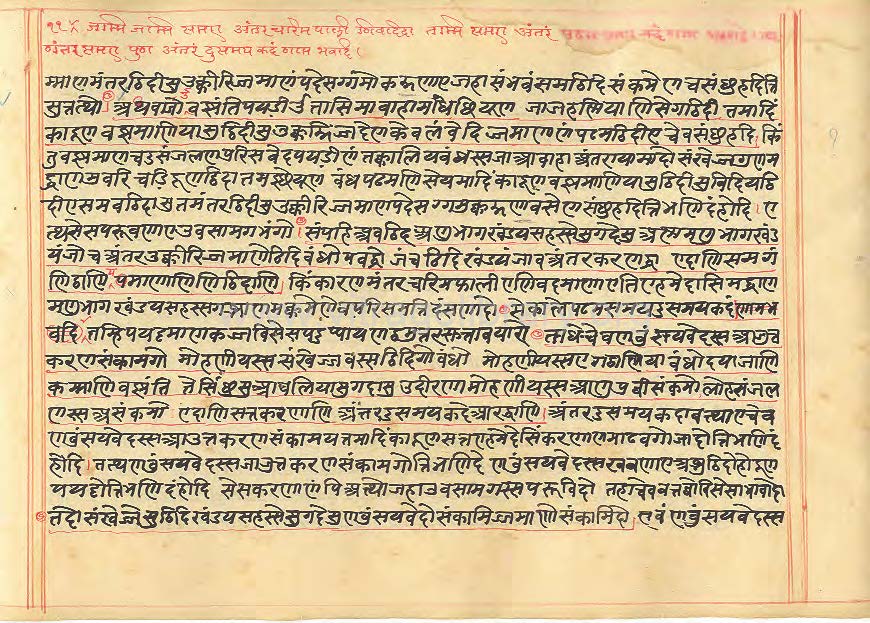 ११ X जम्मि जम्मि समए अंतरचरिमफाली णिवदिदा तम्मि समए अंतरं
णंतरसमए पुण अंतरं दुसमयकदं णाम भवदि।
म्माणमंतरट्ठिदीसु उक्कीरिज्जमाणं पदेसग्गमोकड्डणाए जहासंभवं समट्ठिदिसंकमेण च संछुहदि त्ति
सुत्तत्थो अथवा जाओ बज्झंति पयडीओ तासिमाबाहामधिच्छियूण जा जहण्णिया णिसेगट्ठिदी तमादिं
कादूण बज्झमाणियासु ट्ठिदीसु उक्कड्डिज्जदे ण केवलं वेदिज्जमाणाणं पढमट्ठिदीए चेव संछुहदि किं
तु बज्झमाणचदुसंजलणपुरिसवेदपयडीणं तक्कालियबंधस्स जा आबाहा अंतरायामादो संखेज्जगुणम
द्धाणमुवरि चडिदूण ट्ठिदा तमइच्छियूण बंधपढमणिसेयमादिं कादूण बज्झमाणियासु ट्ठिदीसु विदियट्ठि
दीए समवट्ठिदासु तमंतरट्ठिदीसु उक्कीरिज्जमाणपदेसग्गमुक्कड्डणावसेण संछुहदि त्ति भणिदं होदि। ए
त्थ सेसपरूवणाए उवसामगभंगो। संपहि अवट्ठिदअणुभागखंडयसहस्सेसु गदेसु अण्णमणुभागखंड
यं जो च अंतरे उक्कीरिज्जमाणे ट्ठिदिबंधो पबद्धो जं च ट्ठिदिखंडयं जाव अंतरकरणद्धा एदाणि समगं
णिट्ठाणियमाणाणि णिट्ठिदाणि किं कारणमंतरचरिमफालीए णिवदमाणाए त्ति एहमेदासिमद्धाण
मणुभागखंडयसहस्सगब्भाणमक्कमेण परिसमत्तिदंसणादो। से काले पढमसमयदुसमयकदं णाम भ
वदि। तम्हि पयट्टमाणकज्जविसेसपदुप्पायणट्ठमुत्तरसुत्तावयारो ताधे चेव णवुंसयवेदस्स आउत्त
करणसंकामगो मोहणीयस्स संखेज्जवस्सट्ठिदिगो बंधो मोहणीयस्स एगट्ठाणिया बंधोदया जाणि
कम्माणि बज्झंति तेसिं छसु आवलियासु गदासु उदीरणा मोहणीयस्स आणुपुव्वीसंकमो लोहसंजल
णस्स असंकमो एदाणि सत्त करणाणि अंतरदुसमयकदे आरद्धाणि। अंतरदुसमयकदावत्थाए चेव
णवुंसयवेदस्स आउत्तकरणसंकामयत्तमादिं कादूण सत्तण्हमेदेसिं करणाणमाढवगो जादो त्ति भणिदं
होदि। तत्थ णवुंसयवेदस्स आउत्तकरणसंकामगो त्ति भणिदे णवुंसयवेदस्स खवणाए अब्भुट्ठिदो होदूण
पयट्टो त्ति भणिदं होदि सेसकरणाणं पि अत्थो जहा उवसामगस्स परूविदो तहा चेव वत्तव्वो विसेसाभावादो
तदो संखेज्जेसु ट्ठिदिखंडयसहस्सेसु गदेसु णवुंसयवेदो संकामिज्जमाणो संकामिदो। एवं णवुंसयवेदस्स